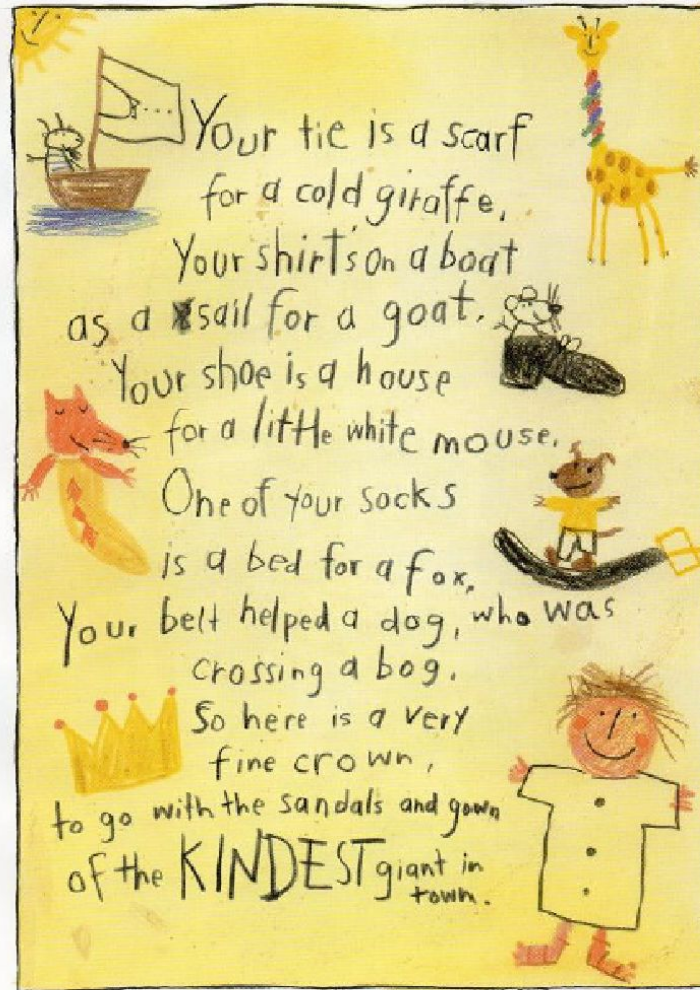 Your tie is a scarf
for a cold giraffe,
Your shirt's on a boat
as a sail for a goat.
Your shoe is a house
for a little white mouse.
One of your socks
is a bed for a fox,
Your belt helped a dog, who was
crossing a bog.
So here is a very
fine crown,
to go with the sandals and gown
of the KINDEST giant in
town.